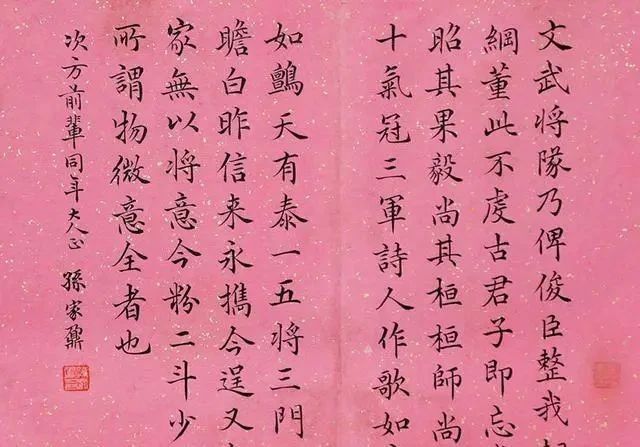 文武将隊乃俾俊臣整我
綱董此不虔古君子即忘
昭其果毅尚其桓桓師尚
十氣冠三軍詩人作歌如
如鸇天有泰一五将三門
瞻白昨信来永擕今逞又
家無以将意今粉二斗少
所謂物微意全者也
次方前輩同年大人正 孫家鼐